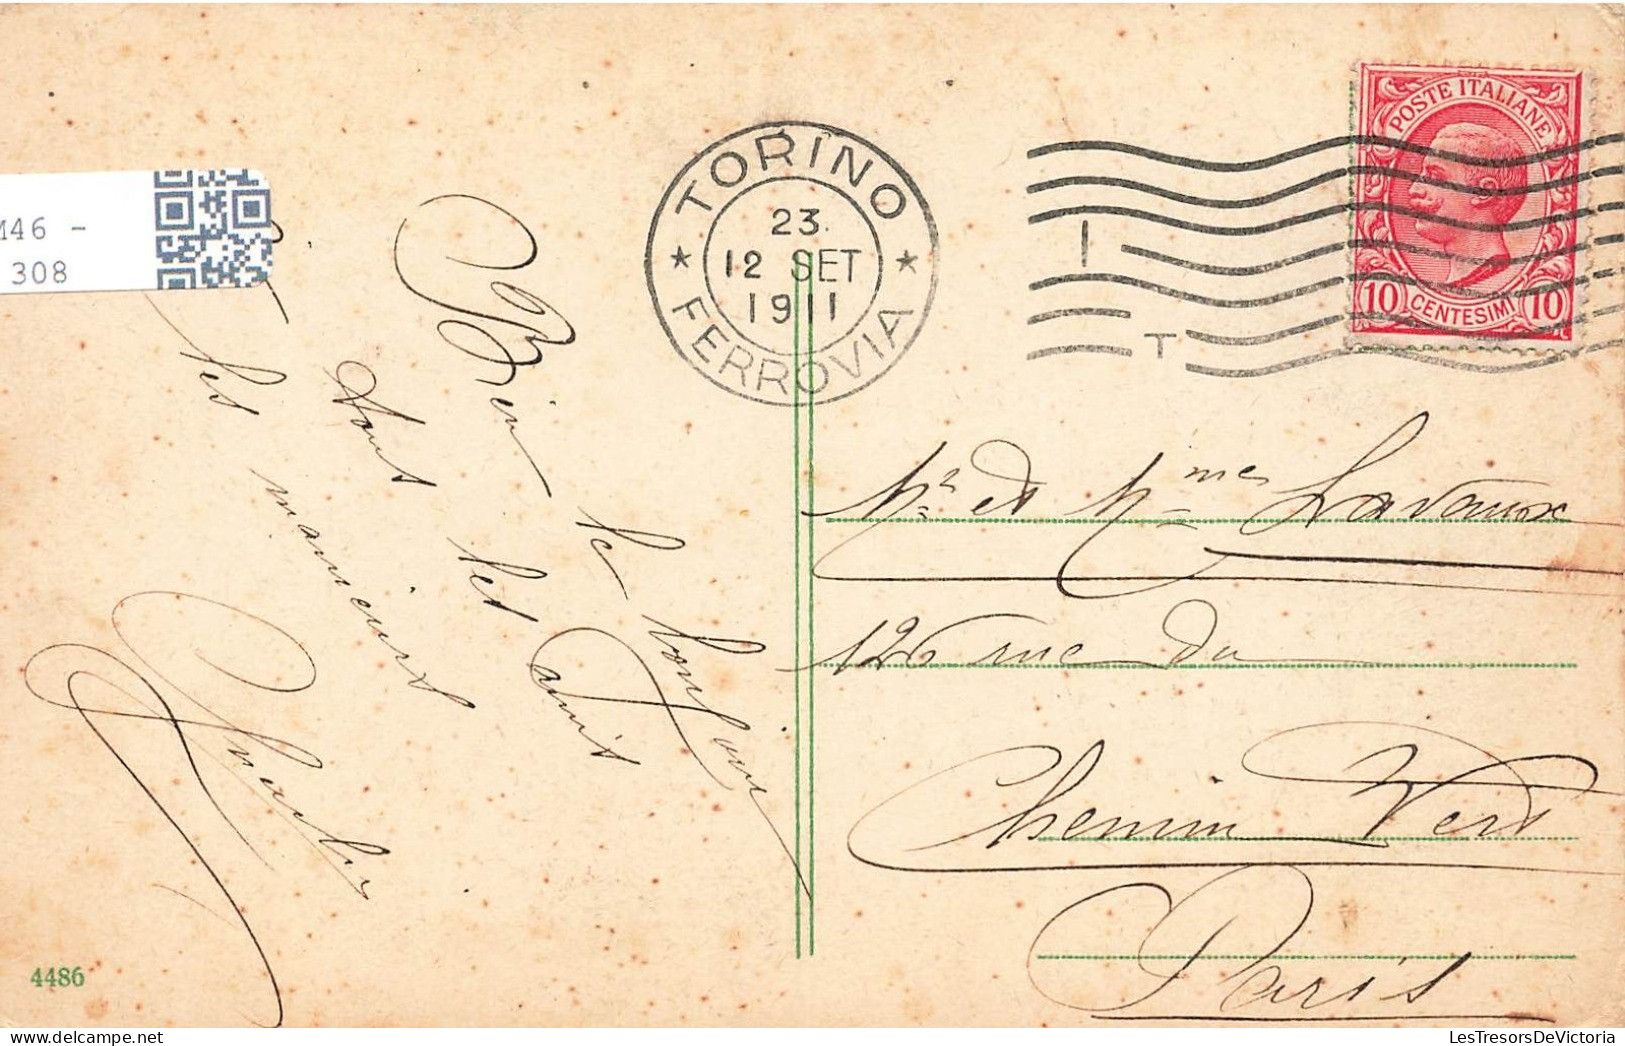 M46 -
308
TORINO
23.
12 SET
1911
FERROVIA
I
T
POSTE ITALIANE
10 CENTESIMI 10
Bien le bonjour
tout les amis
les
Mr et Mmes Lavaux
126 rue du
Chemin Vert
Paris
4486
LesTresorsDeVictoria